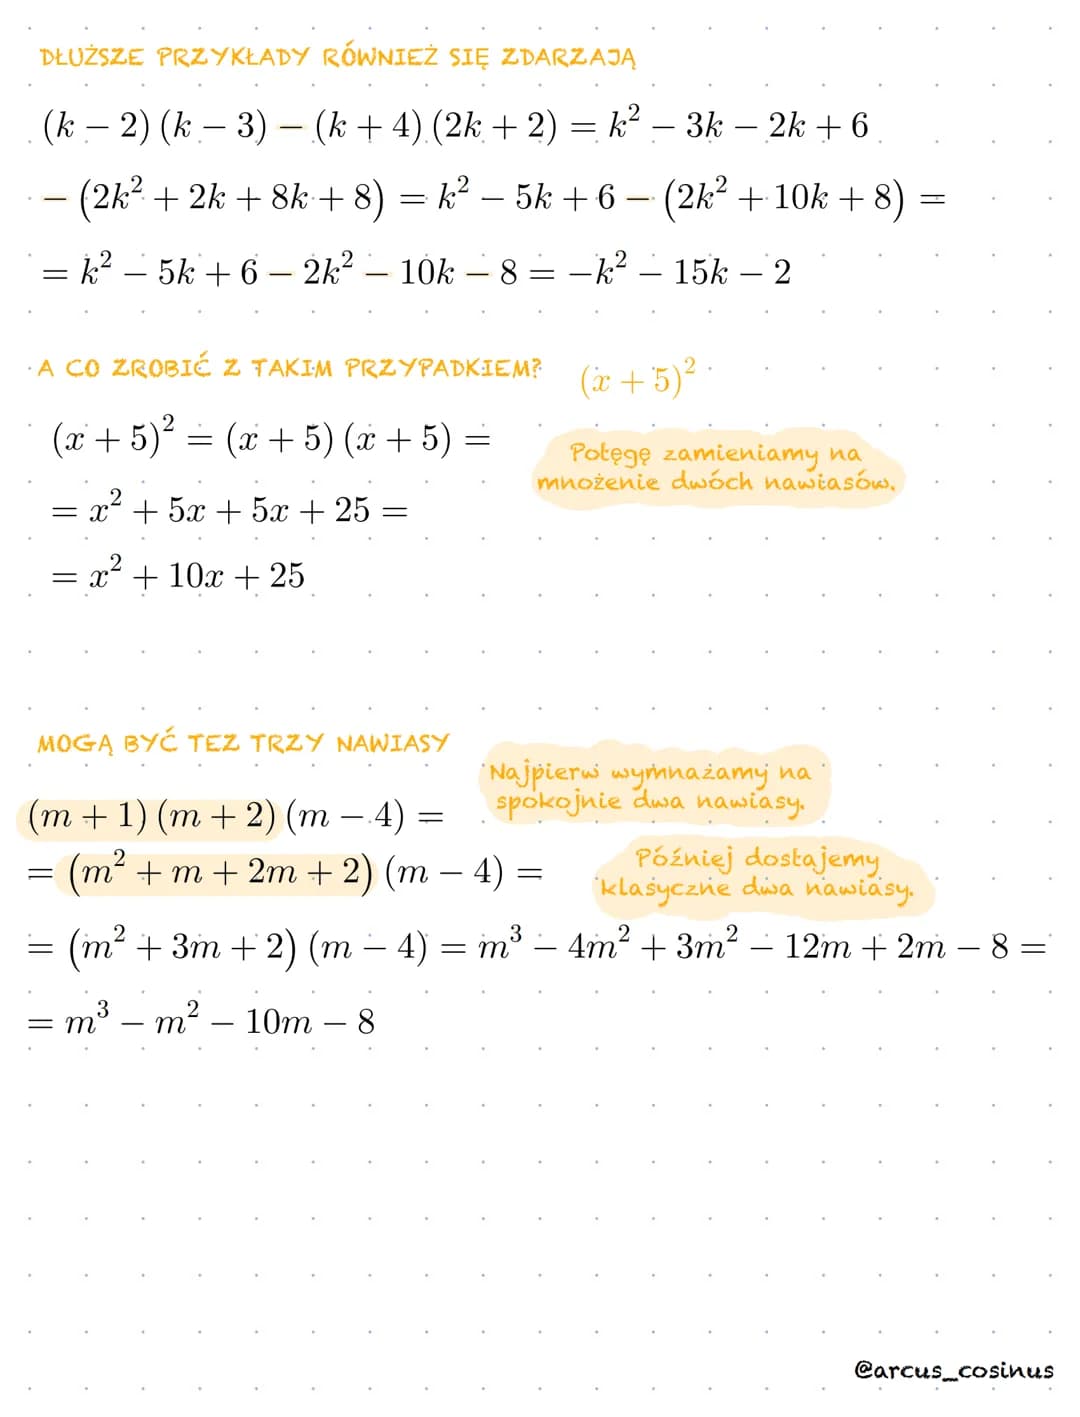 DŁUŻSZE PRZYKŁADY RÓWNIEŻ SIĘ ZDARZAJĄ
(k − 2) (k − 3) − (k + 4) (2k + 2) = k² − 3k − 2k + 6
− (2k² + 2k + 8k + 8) = k² − 5k + 6 − (2k² + 10k + 8) =
= k² − 5k + 6 − 2k² − 10k − 8 = −k² − 15k − 2
A CO ZROBIĆ Z TAKIM PRZYPADKIEM? (x + 5)²
(x + 5)² = (x + 5) (x + 5) =
Potęgę zamieniamy na
mnożenie dwóch nawiasów.
= x² + 5x + 5x + 25 =
= x² + 10x + 25
MOGĄ BYĆ TEZ TRZY NAWIASY
Najpierw wymnażamy na
spokojnie dwa nawiasy.
(m + 1) (m + 2) (m − 4) =
= (m² + m + 2m + 2) (m − 4) =
Później dostajemy
klasyczne dwa nawiasy.
= (m² + 3m + 2) (m − 4) = m³ − 4m² + 3m² − 12m + 2m − 8 =
= m³ − m² − 10m − 8
@arcus_cosinus